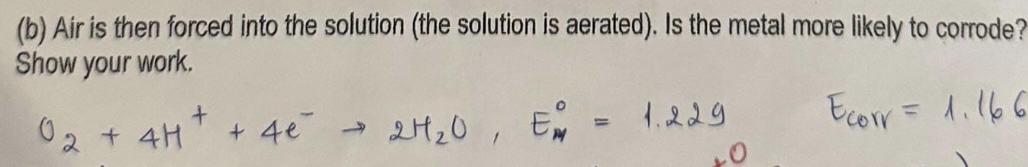 (b) Air is then forced into the solution (the solution is aerated). Is the metal more likely to corrode?
Show your work.
O₂ + 4H⁺ + 4e⁻ → 2H₂O , E° = 1.229 Ecorr = 1.166
+0